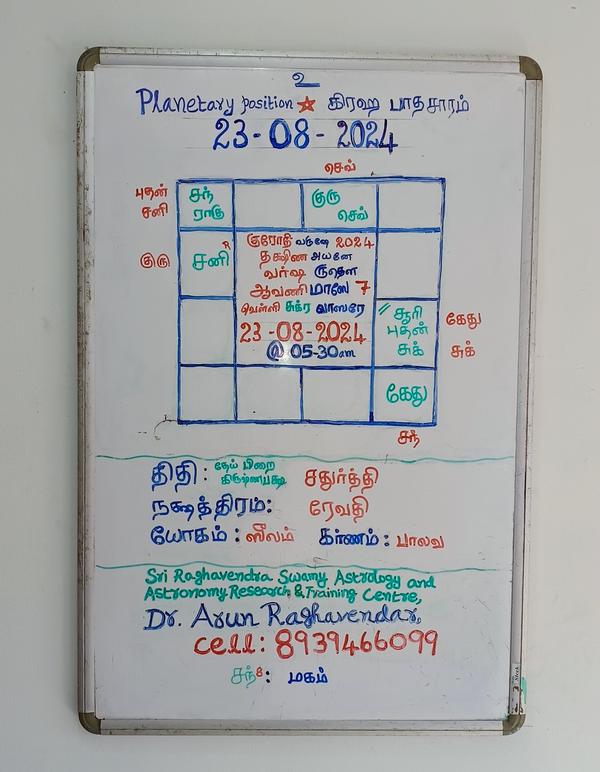 உ
Planetary position ☆ கிரஹ பாதசாரம்
23-08-2024
செவ்
புதன்
சனி
சந்
ராகு
குரு
செவ்
குரு
சனி R
குரோதி வருஷே 2024
தக்ஷிண அயனே
வர்ஷ ருதௌ
ஆவணி மாஸே 7
வெள்ளி சுக்ர வாஸரே
23-08-2024
@ 05-30am
சூரி
புதன்
சுக்
கேது
சுக்
கேது
சந்
திதி : தேய் பிறை
கிருஷ்ணபக்ஷ சதுர்த்தி
நக்ஷத்திரம்: ரேவதி
யோகம் : ஸூலம் கரணம் : பாலவ
Sri Raghavendra Swamy Astrology and
Astronomy Research & Training Centre,
Dr. Arun Raghavendar,
cell: 8939466099
மகம்